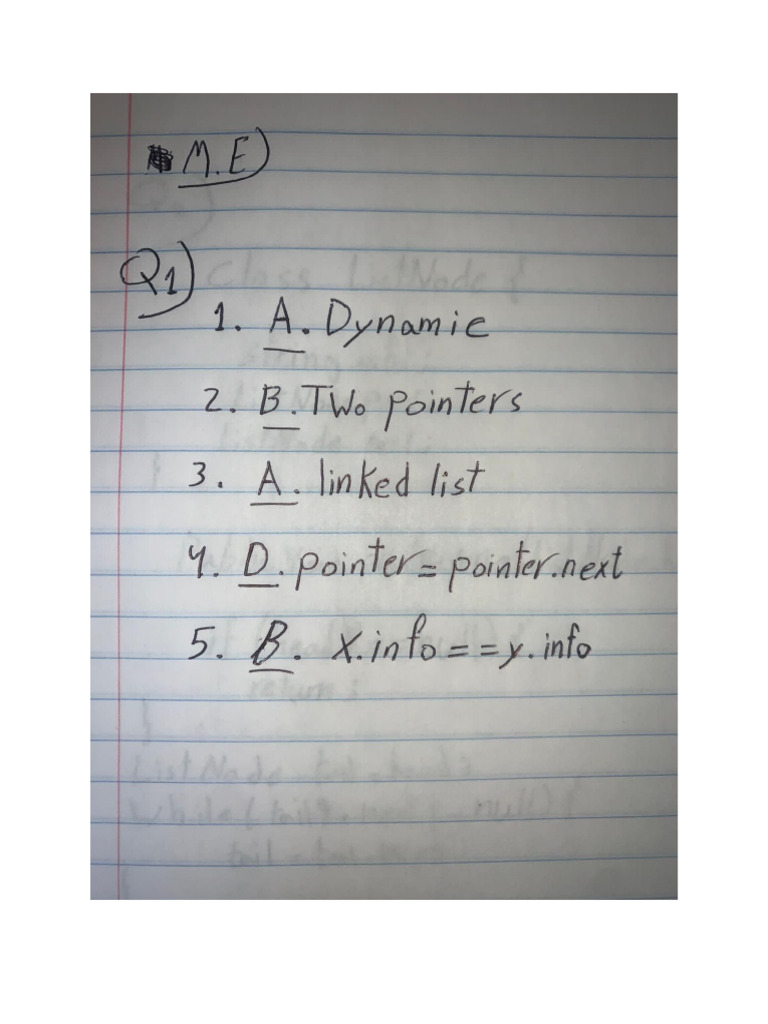 M.E)
Q1)
1. A. Dynamic
2. B. Two pointers
3. A. linked list
4. D. pointer = pointer.next
5. B. X.info == y.info